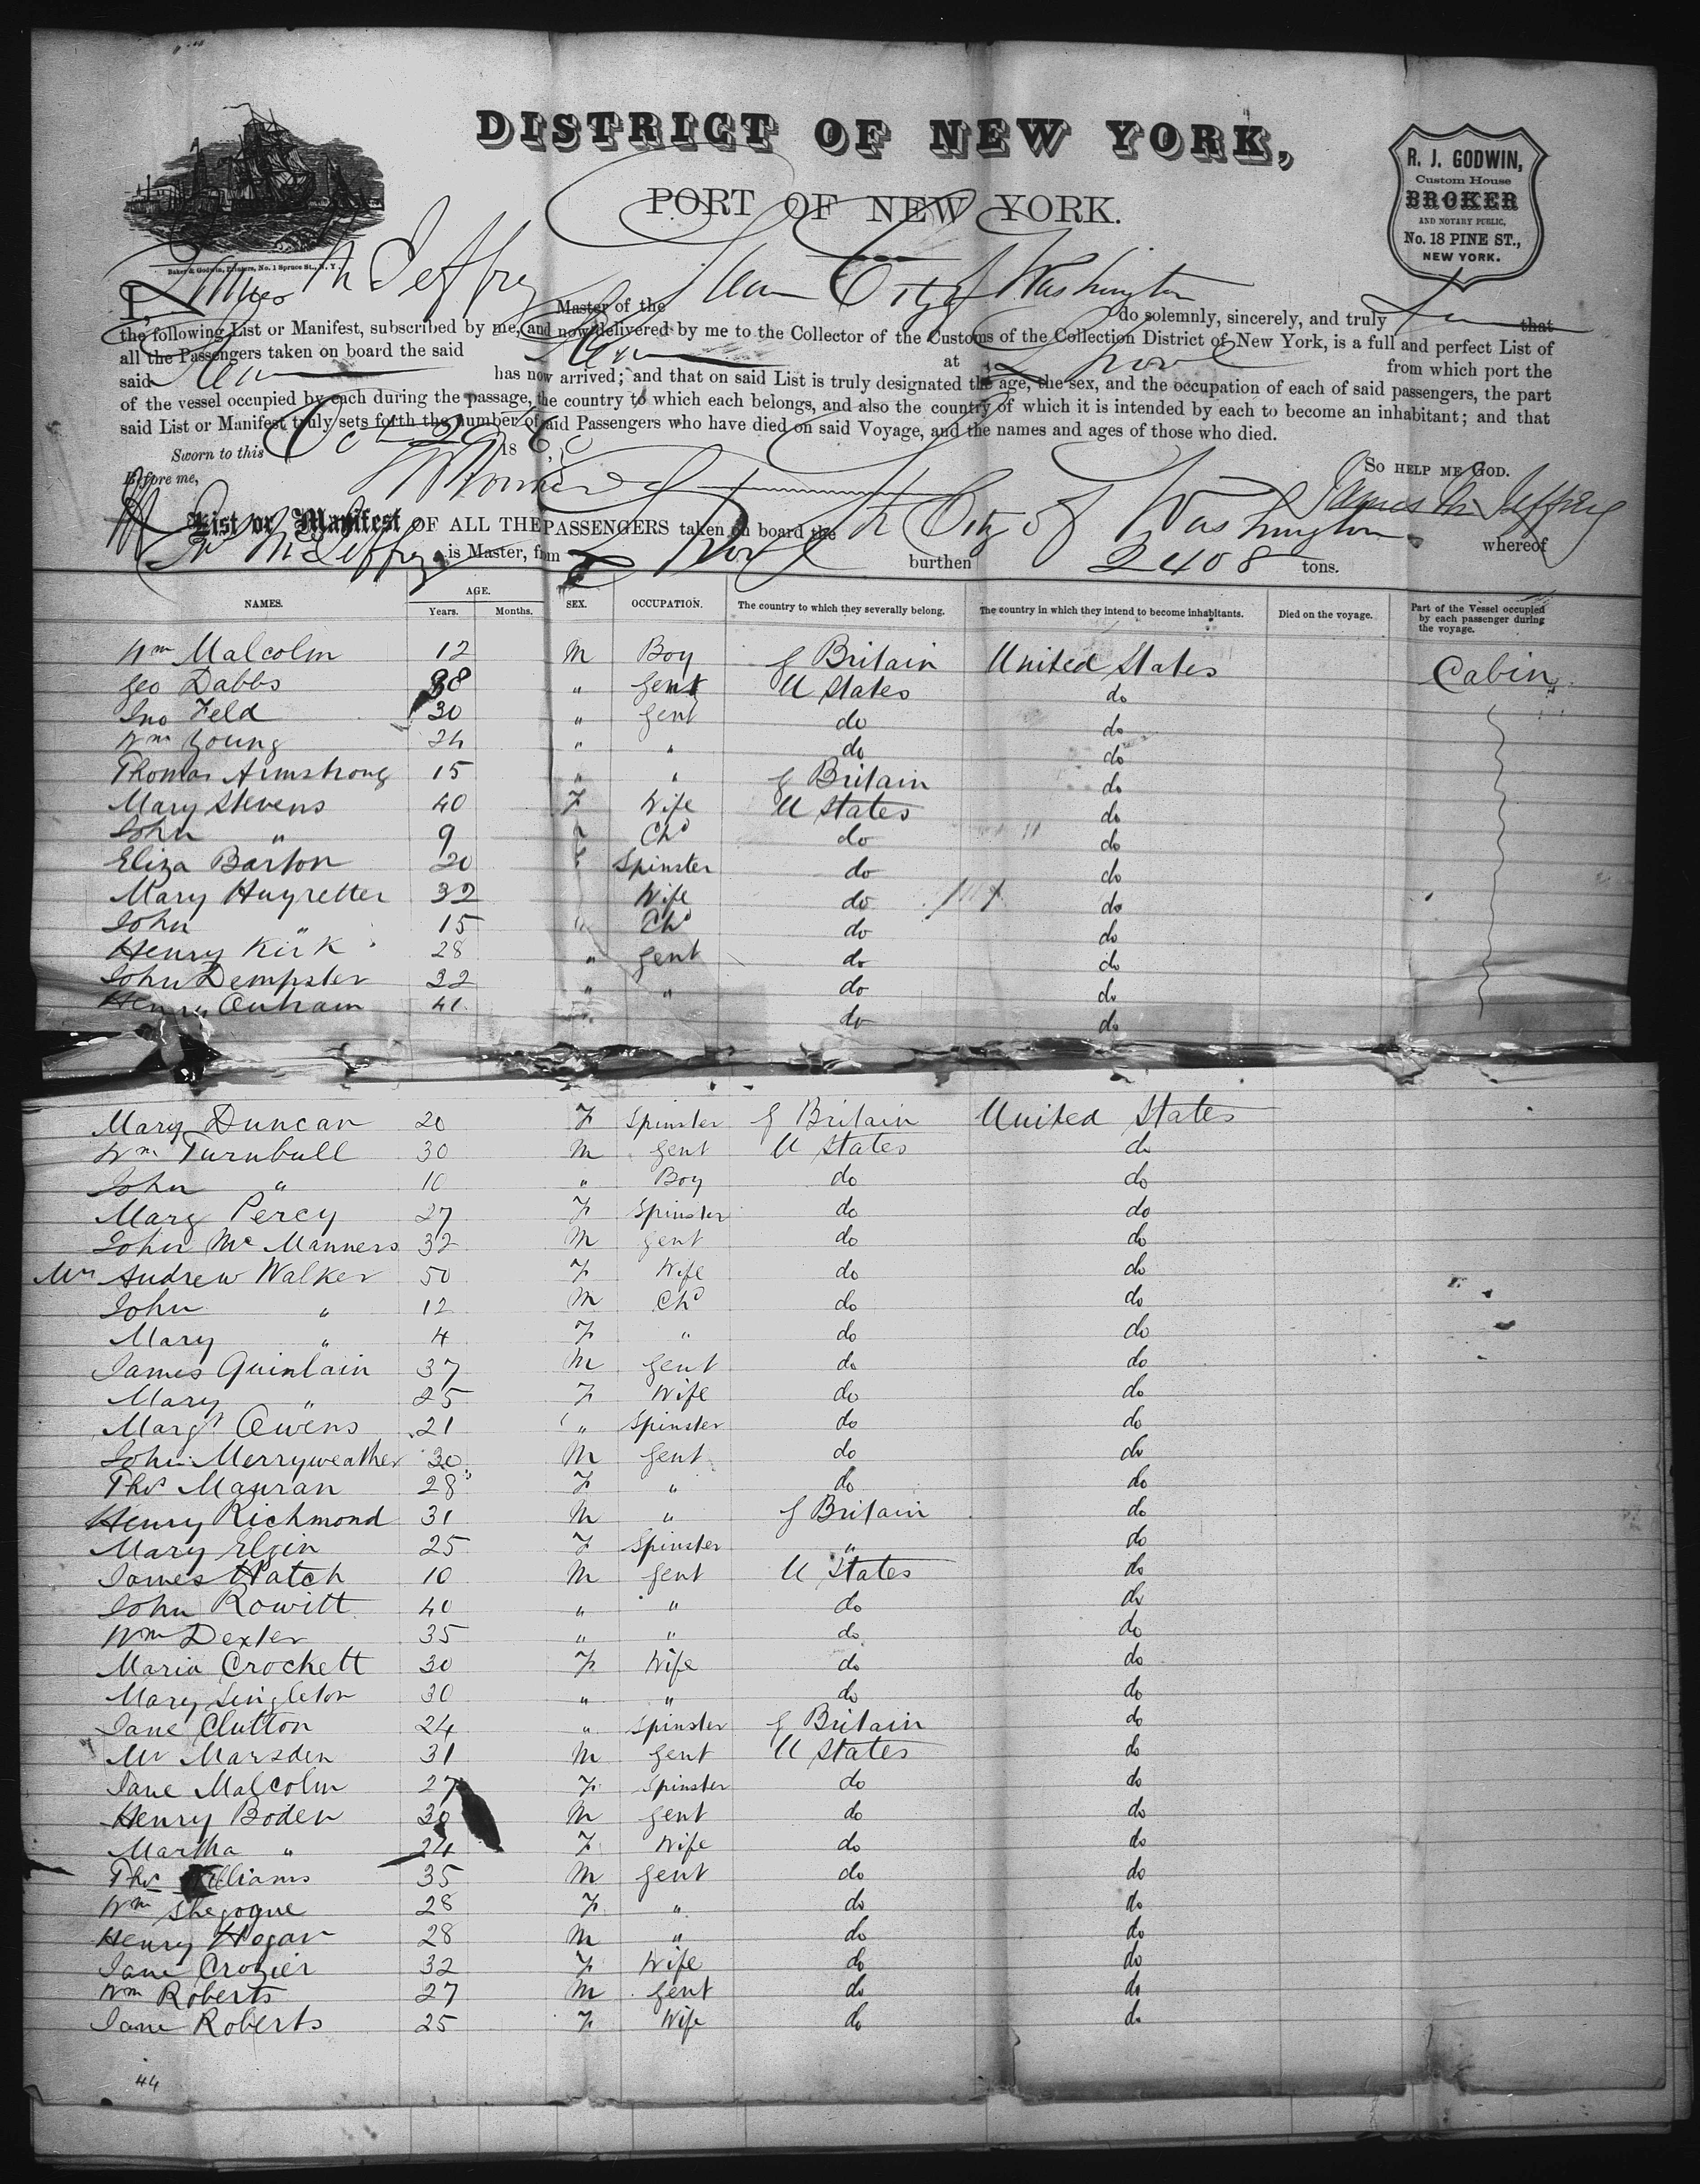 DISTRICT OF NEW YORK,
PORT OF NEW YORK.
R. J. GODWIN,
Custom House
BROKER
AND NOTARY PUBLIC,
No. 18 PINE ST.,
NEW YORK.
Baker & Godwin, Printers, No. 1 Spruce St., N. Y.
I, James McJeffrey Master of the City of Washington do solemnly, sincerely, and truly that
the following List or Manifest, subscribed by me, and now delivered by me to the Collector of the Customs of the Collection District of New York, is a full and perfect List of
all the Passengers taken on board the said at from which port the
said has now arrived; and that on said List is truly designated the age, the sex, and the occupation of each of said passengers, the part
of the vessel occupied by each during the passage, the country to which each belongs, and also the country of which it is intended by each to become an inhabitant; and that
said List or Manifest truly sets forth the number of said Passengers who have died on said Voyage, and the names and ages of those who died.
Sworn to this Oct 186
Before me,
SO HELP ME GOD.
James McJeffrey
List or Manifest OF ALL THE PASSENGERS taken on board the St City of Washington whereof
McJeffrey is Master, from burthen 2408 tons.
NAMES. AGE. Years. Months. SEX. OCCUPATION. The country to which they severally belong. The country in which they intend to become inhabitants. Died on the voyage. Part of the Vessel occupied by each passenger during the voyage.
Wm Malcolm 12 M Boy G Britain United States Cabin
Geo Dabbs 38 " Gent U States do
Jno Feld 30 " Gent do do
Wm Young 24 " " do do
Thomas Armstrong 15 " " G Britain do
Mary Stevens 40 F Wife U States do
John " 9 Chd do do
Eliza Barton 20 Spinster do do
Mary Huyretter 32 Wife do do
John " 15 " Chd do do
Henry Kirk 28 " Gent do do
John Dempster 32 " " do do
Henry 41 do do
Mary Duncan 20 F Spinster G Britain United States
Wm Turnbull 30 M Gent U States do
John " 10 " Boy do do
Mary Percy 27 F Spinster do do
John Mc Manners 32 M Gent do do
Mrs Andrew Walker 50 F Wife do do
John " 12 M Chd do do
Mary " 4 F " do do
James Quinlain 37 M Gent do do
Mary " 25 F Wife do do
Margt Owens 21 " Spinster do do
John Merryweather 30 M Gent do do
Thos Mauran 28 F " do do
Henry Richmond 31 M " G Britain do
Mary Elgin 25 F Spinster " do
James Hatch 10 M Gent U States do
John Rowitt 40 " " do do
Wm Dexter 35 " " do do
Maria Crockett 30 F Wife do do
Mary Singleton 30 " " do do
Jane Clutton 24 " Spinster G Britain do
Mr Marsden 31 M Gent U States do
Jane Malcolm 27 F Spinster do do
Henry Boden 30 M Gent do do
Martha " 24 F Wife do do
Thos Williams 35 M Gent do do
Wm Shegogue 28 F " do do
Henry Hogan 28 M " do do
Jane Crozier 32 F Wife do do
Wm Roberts 27 M Gent do do
Jane Roberts 25 F Wife do do
44